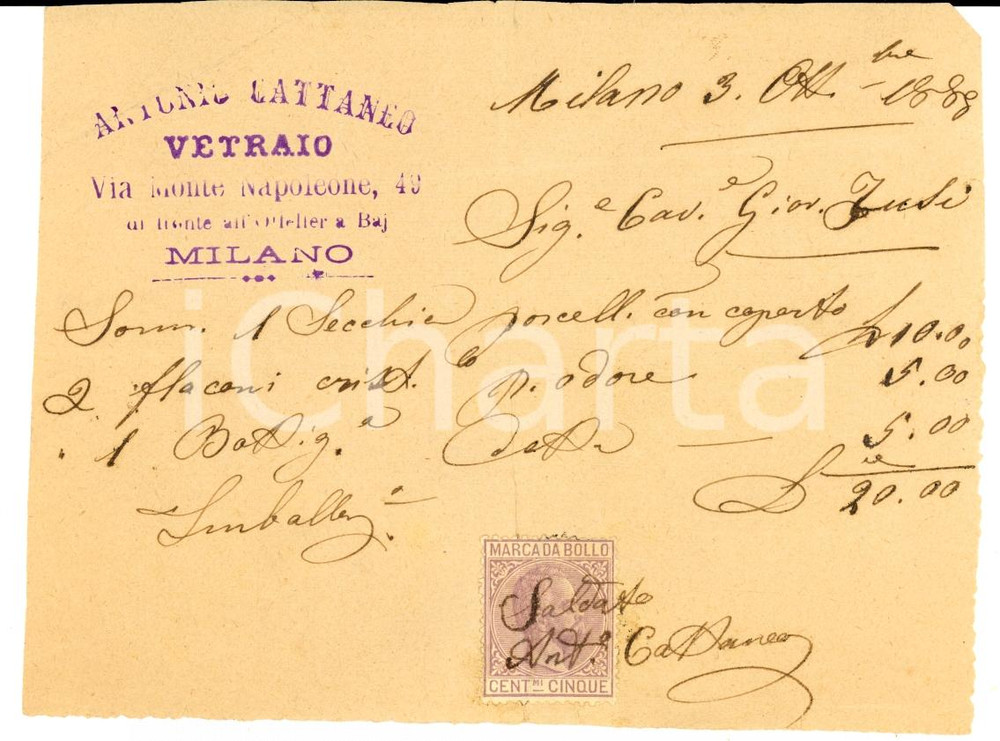 ANTONIO CATTANEO
VETRAIO
Via Monte Napoleone, 49
di fronte all'Offelier a Baj
MILANO
Milano 3. Ott.bre 1888
Sig.e Cav.e Giov.
Somm. 1 Secchia porcell. con coperto £ 10.00
2 flaconi crist.lo p. odore 5.00
" 1 Bottig.a detta — 5.00
Imballo. £ 20.00
iCharta
MARCA DA BOLLO
Saldato
Ant.o Cattaneo
CENT.MI CINQUE